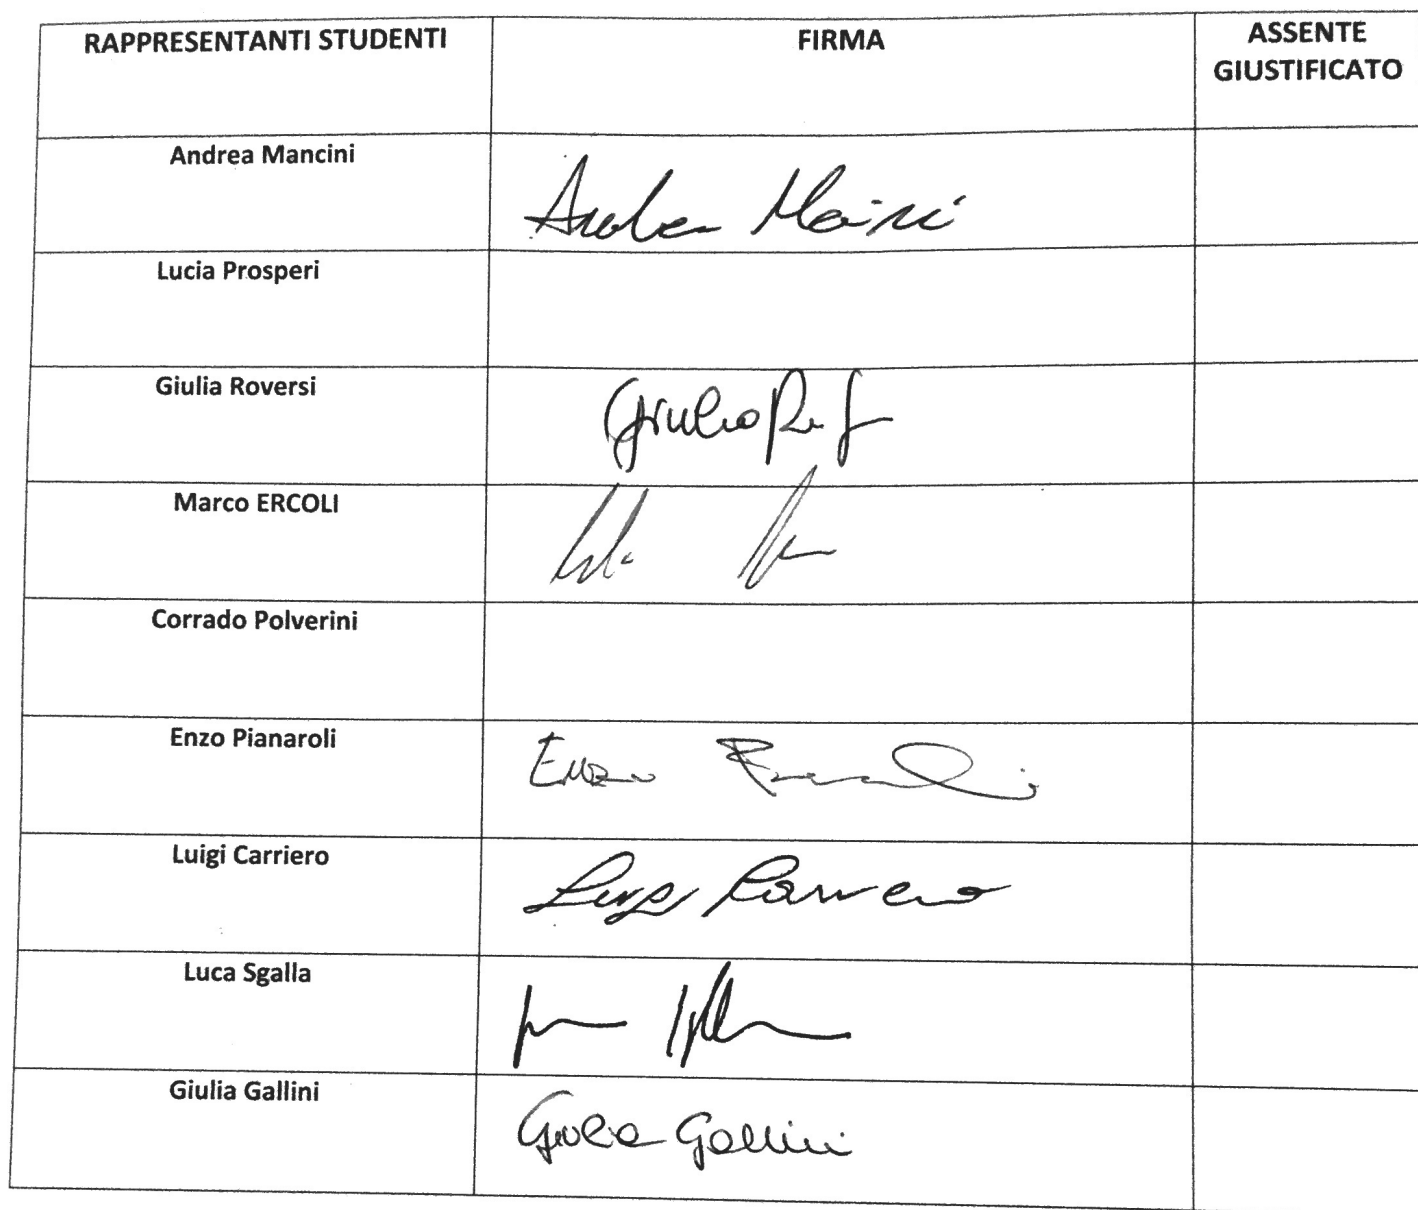 RAPPRESENTANTI STUDENTI FIRMA ASSENTE
GIUSTIFICATO
Andrea Mancini
Lucia Prosperi
Giulia Roversi
Giulia
Marco ERCOLI
Corrado Polverini
Enzo Pianaroli
Enzo
Luigi Carriero
Luigi Carriero
Luca Sgalla
Giulia Gallini
Giulia Gallini